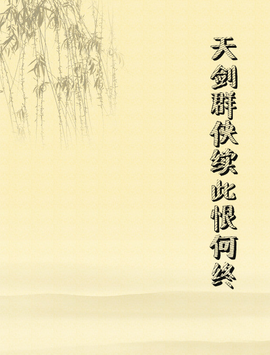 天剑群侠续此恨何终